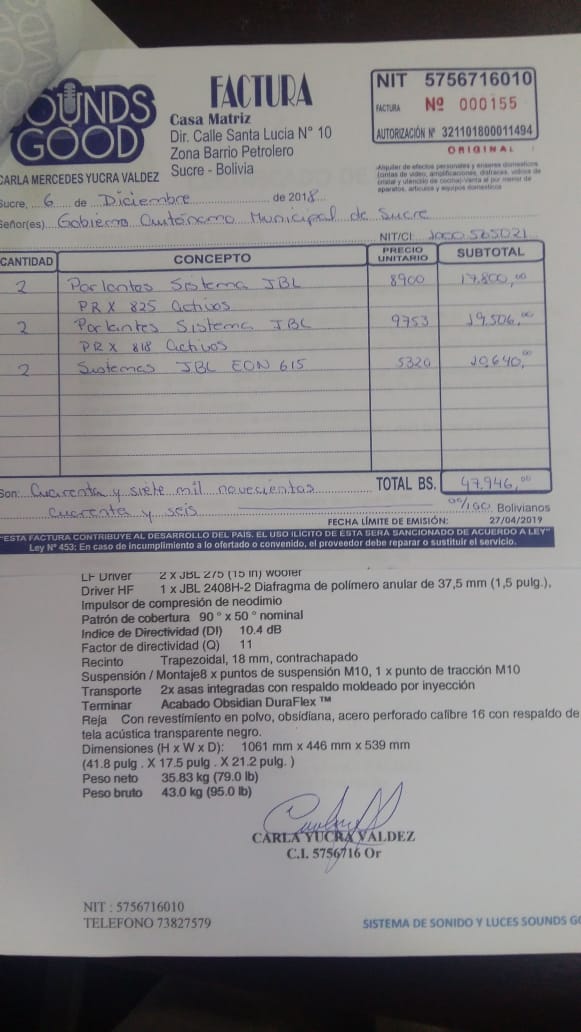 OUNDS
GOOD
CARLA MERCEDES YUCRA VALDEZ
FACTURA
Casa Matriz
Dir. Calle Santa Lucia N° 10
Zona Barrio Petrolero
Sucre - Bolivia
NIT 5756716010
FACTURA Nº 000155
AUTORIZACIÓN Nº 321101800011494
ORIGINAL
Alquiler de efectos personales y enseres domesticos
Sucre, 6 de Diciembre de 2018
Señor(es) Gobierno Autónomo Municipal de Sucre
NIT/CI: 1000565021
CANTIDAD CONCEPTO PRECIO UNITARIO SUBTOTAL
2 Parlantes Sistema JBL 8900 17.800,00
PRX 825 Activos
2 Parlantes Sistema JBL 9753 19.506,00
PRX 818 Activos
2 Sistemas JBL EON 615 5320 10.640,00
TOTAL BS. 47.946,00
Son: Cuarenta y siete mil novecientos
cuarenta y seis 00/100 Bolivianos
FECHA LÍMITE DE EMISIÓN: 27/04/2019
"ESTA FACTURA CONTRIBUYE AL DESARROLLO DEL PAIS. EL USO ILICITO DE ESTA SERÁ SANCIONADO DE ACUERDO A LEY"
Ley Nº 453: En caso de incumplimiento a lo ofertado o convenido, el proveedor debe reparar o sustituir el servicio.
LF Driver 2 x JBL 275 (15 in) woofer
Driver HF 1 x JBL 2408H-2 Diafragma de polímero anular de 37,5 mm (1,5 pulg.),
Impulsor de compresión de neodimio
Patrón de cobertura 90 ° x 50 ° nominal
Indice de Directividad (DI) 10.4 dB
Factor de directividad (Q) 11
Recinto Trapezoidal, 18 mm, contrachapado
Suspensión / Montaje8 x puntos de suspensión M10, 1 x punto de tracción M10
Transporte 2x asas integradas con respaldo moldeado por inyección
Terminar Acabado Obsidian DuraFlex ™
Reja Con revestimiento en polvo, obsidiana, acero perforado calibre 16 con respaldo de
tela acústica transparente negro.
Dimensiones (H x W x D): 1061 mm x 446 mm x 539 mm
(41.8 pulg . X 17.5 pulg . X 21.2 pulg. )
Peso neto 35.83 kg (79.0 lb)
Peso bruto 43.0 kg (95.0 lb)
CARLA YUCRA VALDEZ
C.I. 5756716 Or
NIT : 5756716010
TELEFONO 73827579
SISTEMA DE SONIDO Y LUCES SOUNDS GO